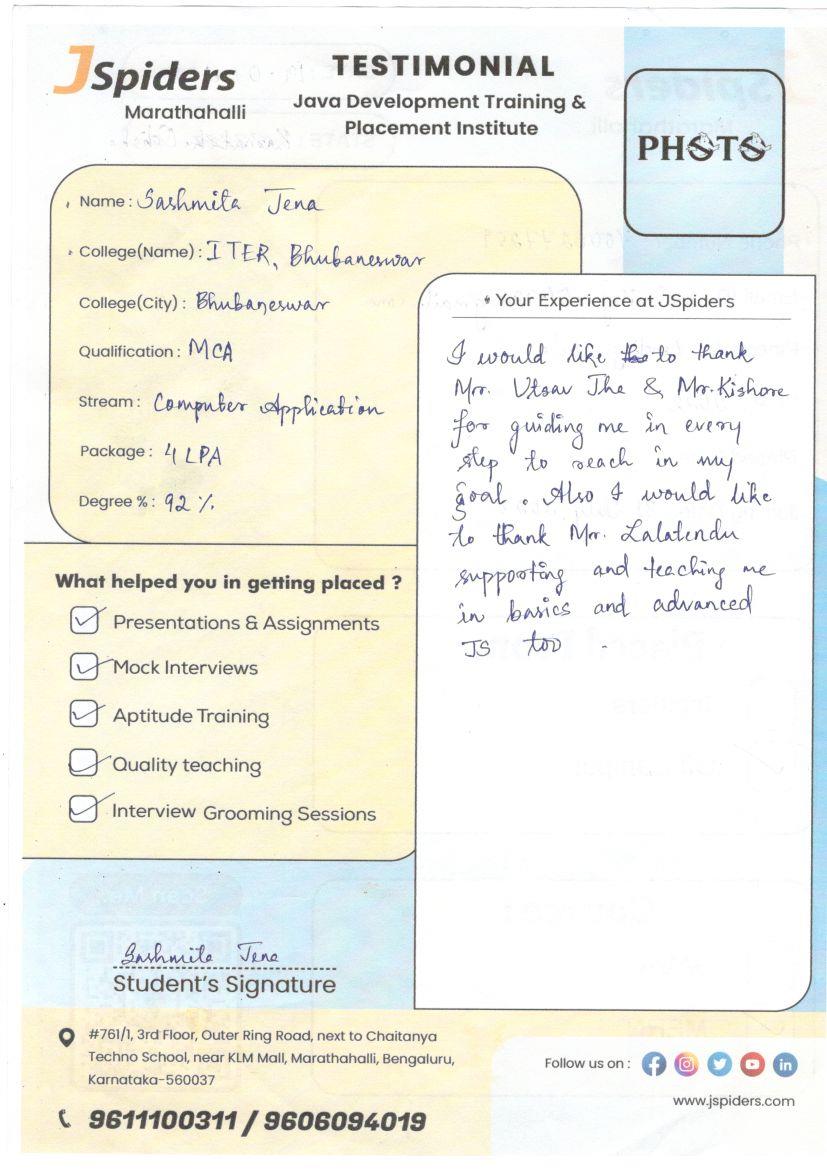 JSpiders
Marathahalli
TESTIMONIAL
Java Development Training &
Placement Institute
PHOTO
Name : Sashmita Jena
College(Name) : ITER, Bhubaneswar
College(City) : Bhubaneswar
Qualification : MCA
Stream : Computer Application
Package : 4 LPA
Degree % : 92 %
What helped you in getting placed ?
Presentations & Assignments
Mock Interviews
Aptitude Training
Quality teaching
Interview Grooming Sessions
Your Experience at JSpiders
I would like to thank
Mr. Utsav Jha & Mr. Kishore
for guiding me in every
step to reach in my
goal. Also I would like
to thank Mr. Lalatendu
supporting and teaching me
in basics and advanced
JS too .
Sashmita Jena
Student's Signature
#761/1, 3rd Floor, Outer Ring Road, next to Chaitanya
Techno School, near KLM Mall, Marathahalli, Bengaluru,
Karnataka-560037
9611100311 / 9606094019
Follow us on :
www.jspiders.com